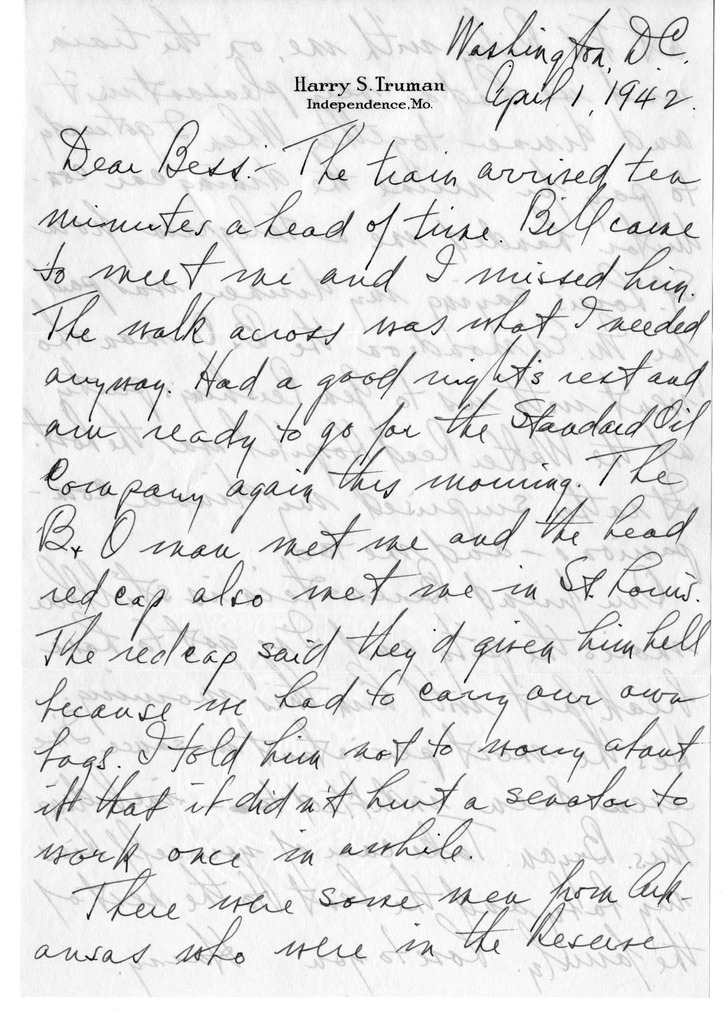 Washington, D.C.
Harry S. Truman
Independence, Mo.
April 1, 1942.
Dear Bess:- The train arrived ten
minutes ahead of time. Bill came
to meet me and I missed him.
The walk across was what I needed
anyway. Had a good night's rest and
am ready to go for the Standard Oil
Company again this morning. The
B+O man met me and the head
red cap also met me in St. Louis.
The red cap said they'd given him hell
because we had to carry our own
bags. I told him not to worry about
it that it didn't hurt a senator to
work once in awhile.
There were some men from Ark-
ansas who were in the Reserve